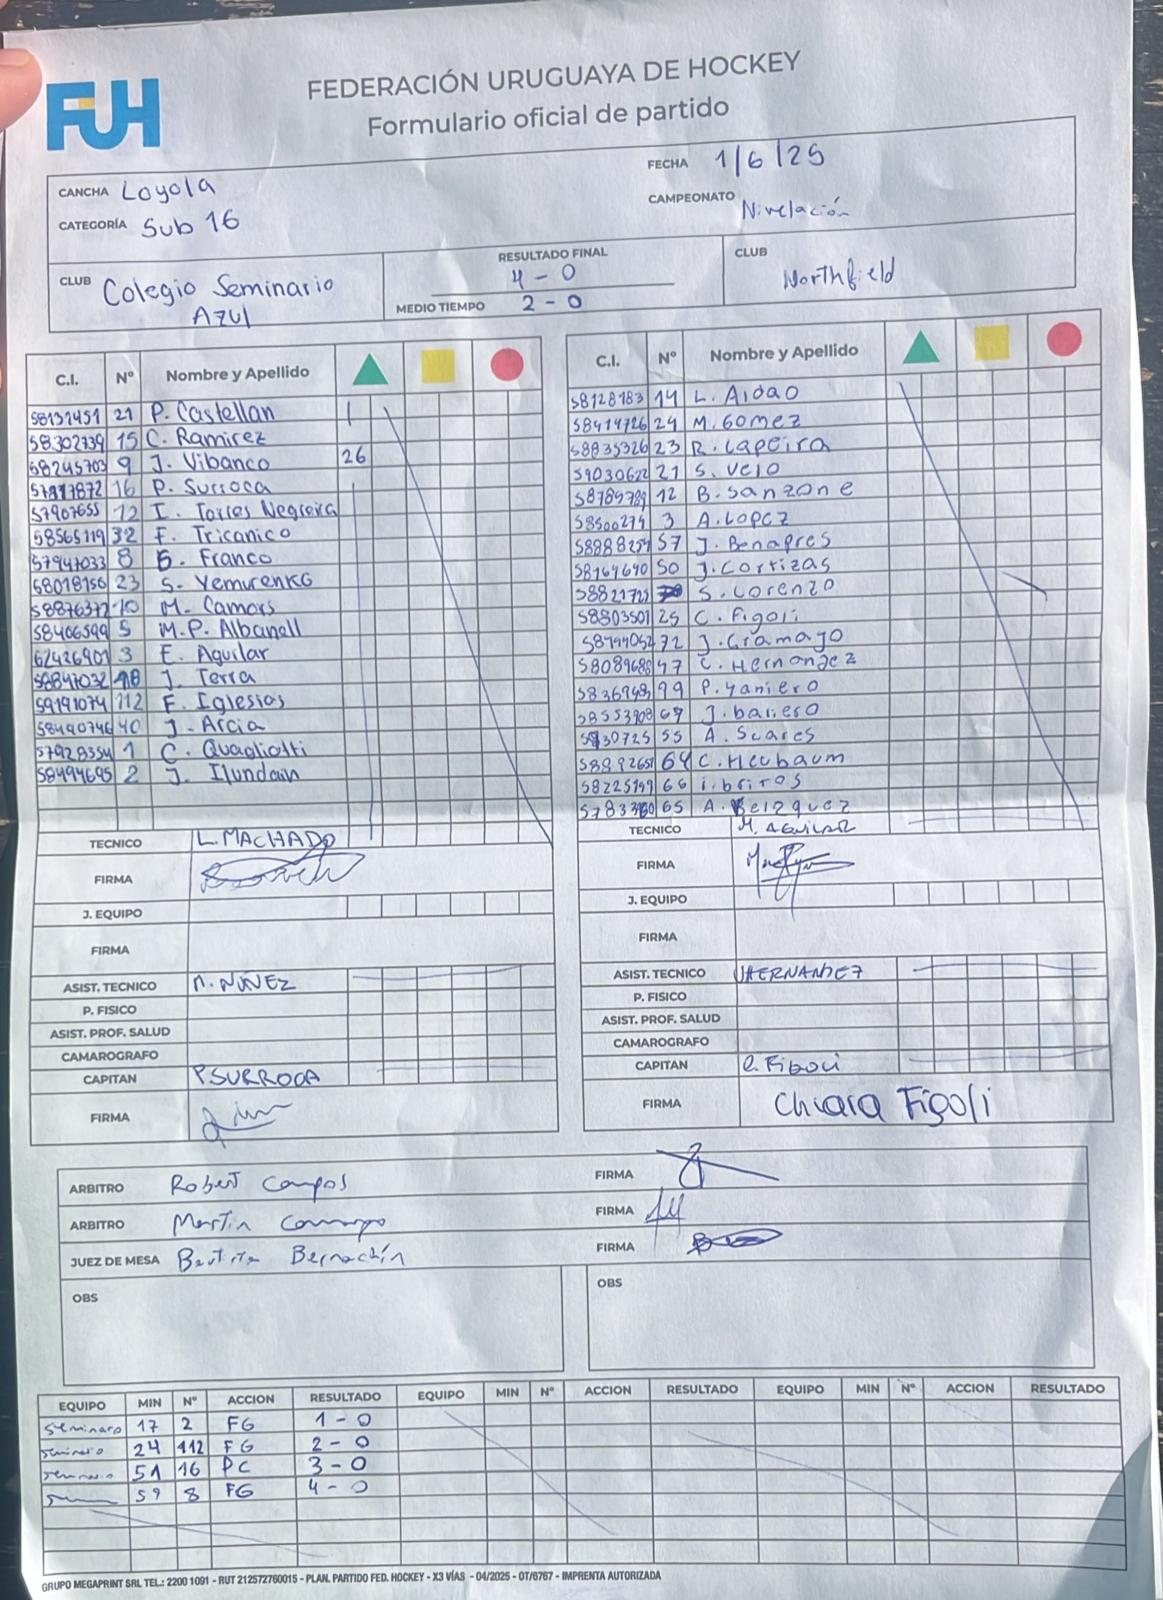 FUH
FEDERACIÓN URUGUAYA DE HOCKEY
Formulario oficial de partido
FECHA 1/6/25
CANCHA Loyola
CAMPEONATO Nivelación
CATEGORÍA Sub 16
CLUB Colegio Seminario Azul
RESULTADO FINAL 4-0
MEDIO TIEMPO 2-0
CLUB Northfield
C.I. Nº Nombre y Apellido
21 P. Castellan 1
58302739 15 C. Ramirez
58245703 9 J. Vibanco 26
16 P. Surroca
57907655 12 I. Torres Negreira
58565119 32 F. Tricanico
57947033 8 B. Franco
58018156 23 S. Yemurenko
10 M. Camors
58406599 5 M.P. Albanell
62426901 3 E. Aguilar
58841032 J. Terra
59191074 112 F. Iglesias
58490746 40 J. Arcia
57928354 1 C. Quagliotti
58494695 2 J. Ilundain
TECNICO L. MACHADO
FIRMA
J. EQUIPO
FIRMA
ASIST. TECNICO N. NUÑEZ
P. FISICO
ASIST. PROF. SALUD
CAMAROGRAFO
CAPITAN P SURROCA
FIRMA
C.I. Nº Nombre y Apellido
58128183 14 L. Aldao
58414726 24 M. Gomez
58835326 23 R. Lapeira
59030622 21 S. Velo
58789789 12 B. Sanzone
58500274 3 A. Lopez
57 J. Benapres
58164640 50 J. Cortizas
S. Lorenzo
58803501 25 C. Figoli
72 J. Gramajo
58089688 47 C. Hernandez
99 P. Yaniero
58553908 67 J. bariero
55 A. Suares
58892651 64 C. Heubaum
58225199 66 i. briros
65 A. Belzquez
TECNICO M. AGUILAR
FIRMA
J. EQUIPO
FIRMA
ASIST. TECNICO HERNANDEZ
P. FISICO
ASIST. PROF. SALUD
CAMAROGRAFO
CAPITAN C. Figoli
FIRMA Chiara Figoli
ARBITRO Robert Campos FIRMA
ARBITRO Martin Camargo FIRMA
JUEZ DE MESA Bautista Bernachín FIRMA
OBS OBS
EQUIPO MIN Nº ACCION RESULTADO EQUIPO MIN Nº ACCION RESULTADO EQUIPO MIN Nº ACCION RESULTADO
Seminaro 17 2 FG 1-0
Seminario 24 112 FG 2-0
51 16 PC 3-0
59 8 FG 4-0
GRUPO MEGAPRINT SRL TEL.: 2200 1091 - RUT 212572760015 - PLAN. PARTIDO FED. HOCKEY - X3 VÍAS - 04/2025 - OT/6767 - IMPRENTA AUTORIZADA